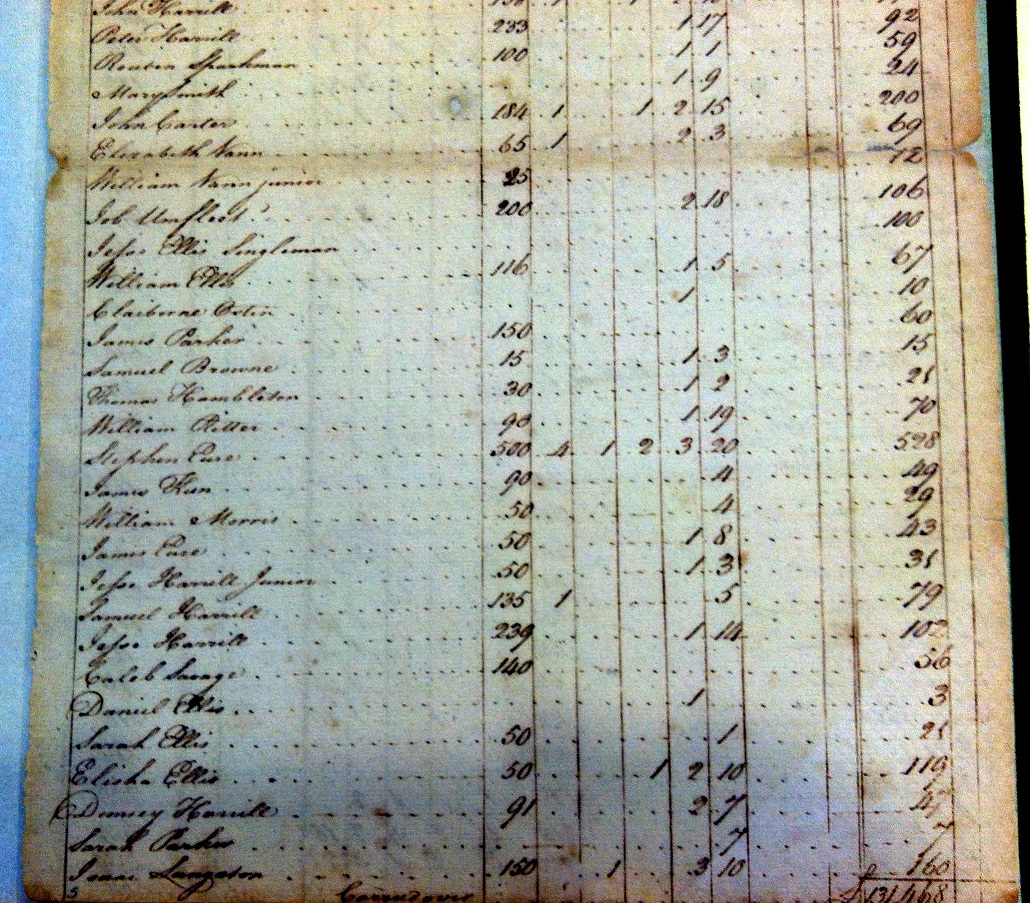 John Harrill 1
Peter Harrill 233 1 17 92
Reuben Sparkman 100 1 1 59
Mary Smith 1 9 24
John Carter 184 1 1 2 15 200
Elizabeth Vann 65 1 2 3 69
William Vann junior 25 12
Job Umfleet 200 2 18 106
Jesse Ellis Singleman 100
William Ellis 116 1 5 67
Claiborne 1 10
James Parker 150 60
Samuel Browne 15 1 3 15
Thomas Hambleton 30 1 2 21
William Ritter 90 1 19 70
Stephen Eure 500 4 1 2 3 20 528
James Keen 90 4 49
William Morris 50 4 29
James Eure 50 1 8 43
Jesse Harrill Junior 50 1 3 31
Samuel Harrill 135 1 5 79
Jesse Harrill 239 1 14 102
Caleb Savage 140 56
Daniel Ellis 1 3
Sarah Ellis 50 1 21
Elisha Ellis 50 1 2 10 119
Demsey Harrill 91 2 7 47
Sarah Parker 7 7
Isaac Langston 150 1 3 10 160
5 Carried over £ 131,468